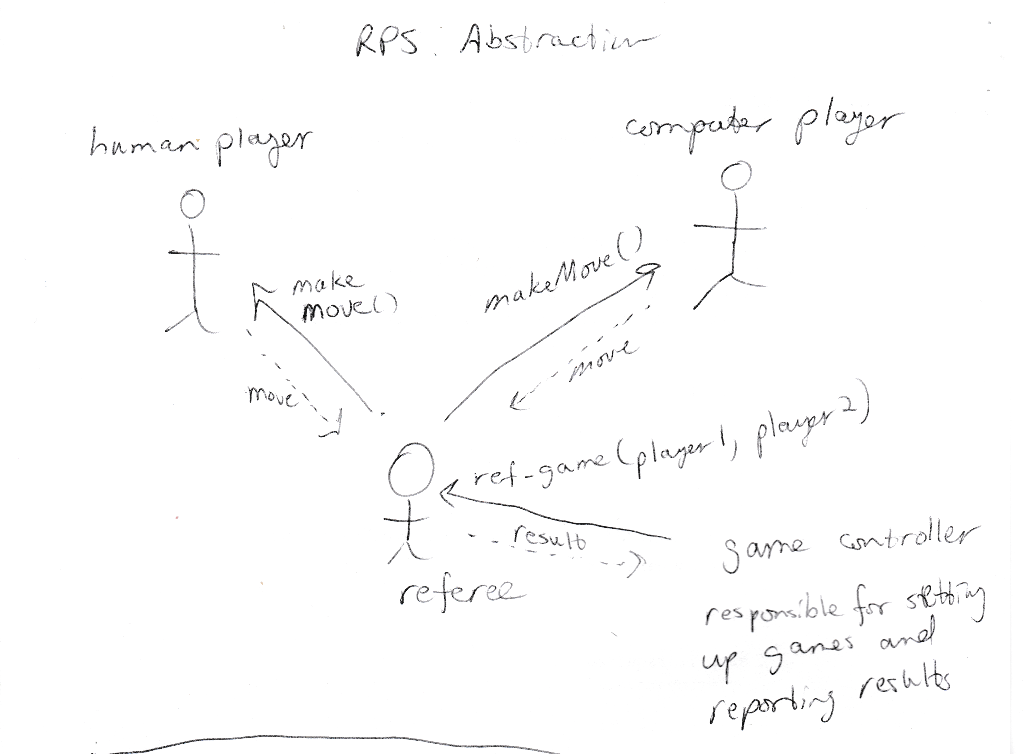 RPS: Abstraction
human player
computer player
make
move()
makeMove()
move
move
ref-game(player1, player2)
result
game controller
referee
responsible for setting
up games and
reporting results